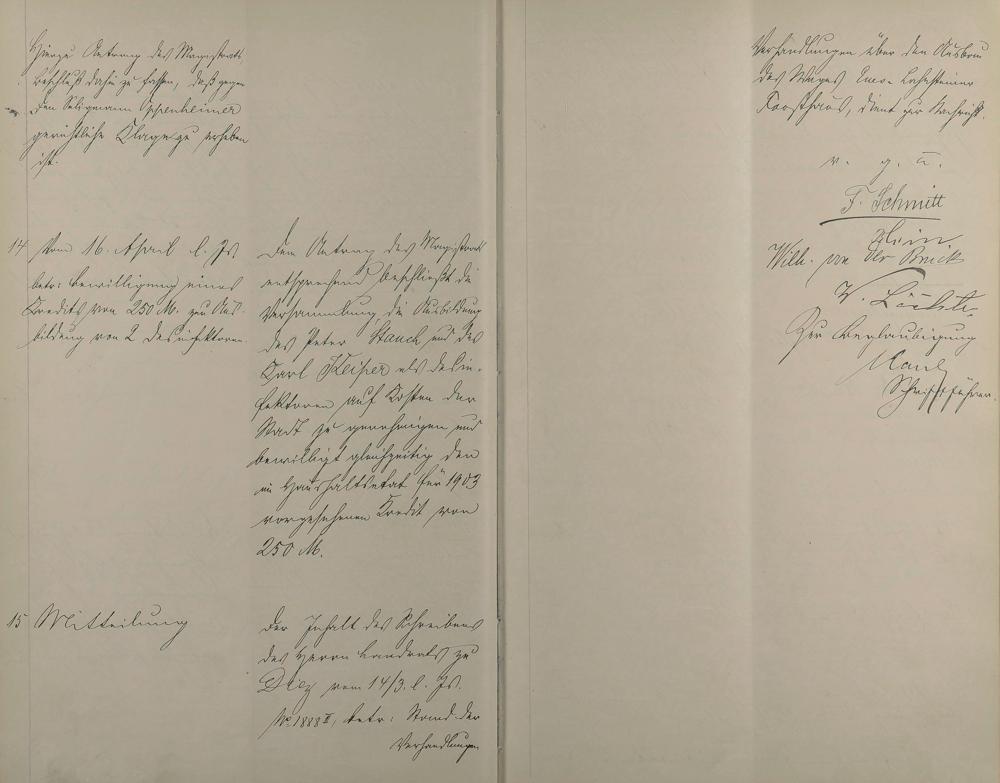 Hierzu Antrag des Magistrats
Beschluß dahin zu fassen, daß gegen
den Seligmann Oppenheimer
gerichtliche Klage zu erheben
ist.
14 Vom 16. April l. Js.
betr: Bewilligung eines
Kredits von 250 M. zur Aus-
bildung von 2 Desinfektoren.
Dem Antrag des Magistrats
entsprechend beschließt die
Versammlung, die Ausbildung
des Peter Stauch und des
Karl Keiper als Desin-
fektoren auf Kosten der
Stadt zu genehmigen und
bewilligt gleichzeitig den
im Haushaltsetat für 1903
vorgesehenen Kredit von
250 M.
15 Mitteilung
Der Inhalt des Schreibens
des Herrn Landrats zu
Diez vom 14/3. l. Js.
No 1888 II, betr: Stand der
Verhandlungen
Verhandlungen über den Ausbau
des Weges Ems-Lahnsteiner
Forsthaus, dient zur Nachricht.
v. g. u.
F. Schmitt
Wilh. von der Bruck
Zur Beglaubigung
Schriftführer.